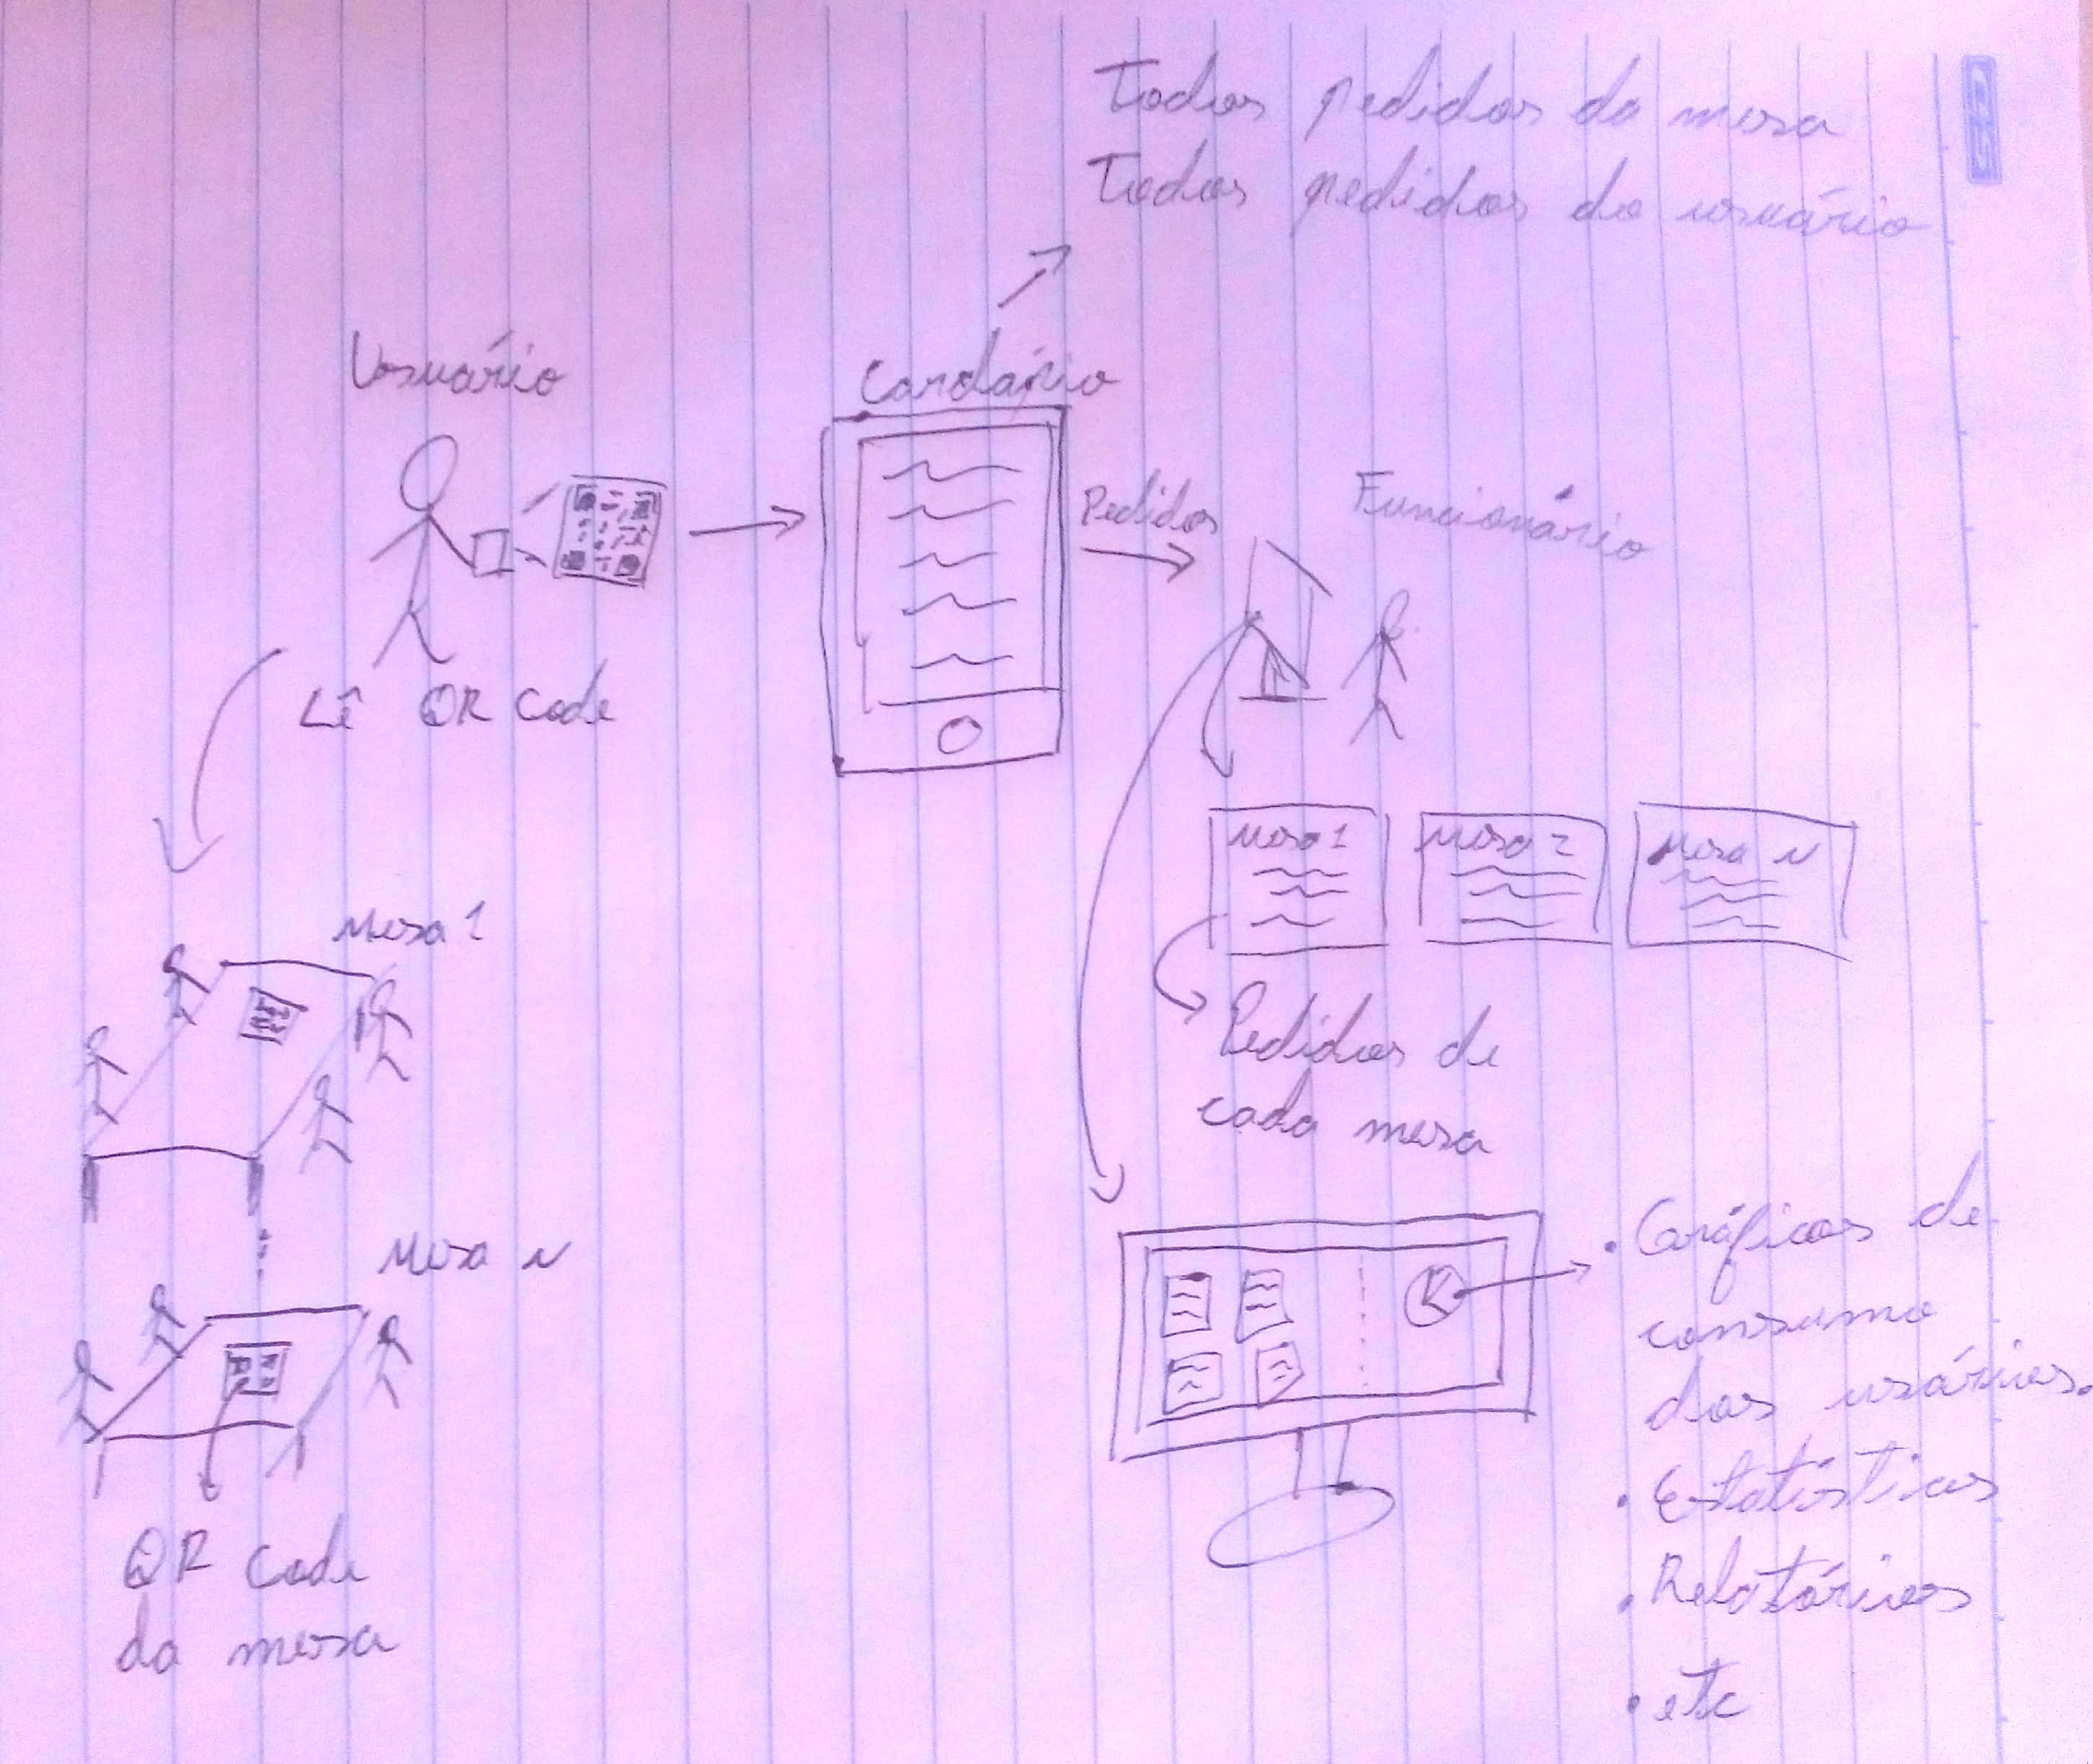 Todos pedidos da mesa
Todos pedidos do usuário
Usuário
Cardápio
Pedidos
Funcionário
Lê QR Code
Mesa 1
Mesa 2
Mesa N
Pedidos de
cada mesa
Mesa 1
Mesa N
QR Code
da mesa
• Gráficos de
consumo
dos usários.
• Estatísticas
• Relatórios
• etc